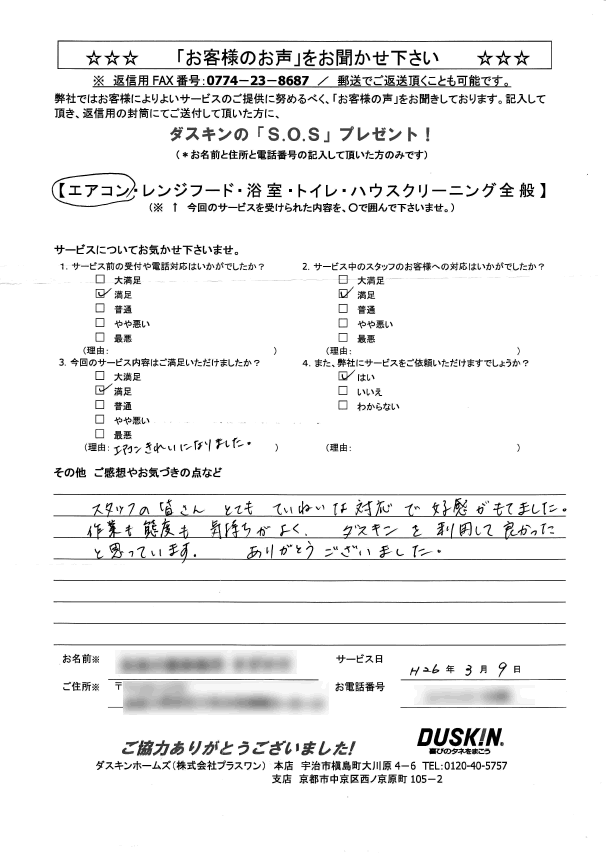 ☆☆☆　「お客様のお声」をお聞かせ下さい　☆☆☆
※ 返信用FAX番号：0774－23－8687　／　郵送でご返送頂くことも可能です。
弊社ではお客様によりよいサービスのご提供に努めるべく、「お客様の声」をお聞きしております。記入して
頂き、返信用の封筒にてご送付して頂いた方に、
ダスキンの「S.O.S」プレゼント！
（＊お名前と住所と電話番号の記入して頂いた方のみです）
【エアコン・レンジフード・浴室・トイレ・ハウスクリーニング全般】
（※ ↑ 今回のサービスを受けられた内容を、〇で囲んで下さいませ。）
サービスについてお気かせ下さいませ。
1. サービス前の受付や電話対応はいかがでしたか？
□ 大満足
☑ 満足
□ 普通
□ やや悪い
□ 最悪
（理由：　　　）
2. サービス中のスタッフのお客様への対応はいかがでしたか？
□ 大満足
☑ 満足
□ 普通
□ やや悪い
□ 最悪
（理由：　　　）
3. 今回のサービス内容はご満足いただけましたか？
□ 大満足
☑ 満足
□ 普通
□ やや悪い
□ 最悪
（理由：エアコンきれいになりました。　）
4. また、弊社にサービスをご依頼いただけますでしょうか？
☑ はい
□ いいえ
□ わからない
（理由：　　　）
その他 ご感想やお気づきの点など
スタッフの皆さん とても ていねいな対応で 好感がもてました。
作業も態度も 気持ちがよく、 ダスキンを利用して良かった
と思っています。 ありがとうございました。
お名前※
サービス日　H26年 3月 9日
ご住所※　〒
お電話番号
ご協力ありがとうございました！
DUSKIN®
喜びのタネをまこう
ダスキンホームズ（株式会社プラスワン）　本店　宇治市槇島町大川原４－６　TEL:0120-40-5757
支店　京都市中京区西ノ京原町１０５－２